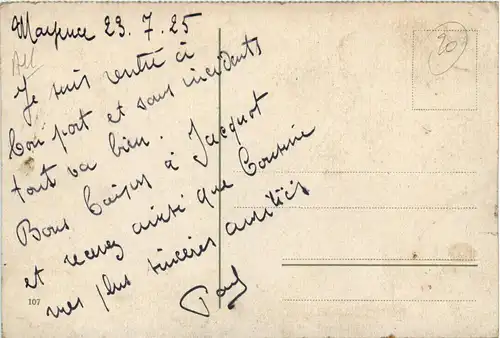 Mayence 23.7.25
All
Je suis rentré à
bon port et sans incidents
tout va bien.
Bons baisers à Jacquot
et recevez ainsi que Cousine
mes plus sincères amitiés
Paul
20
107